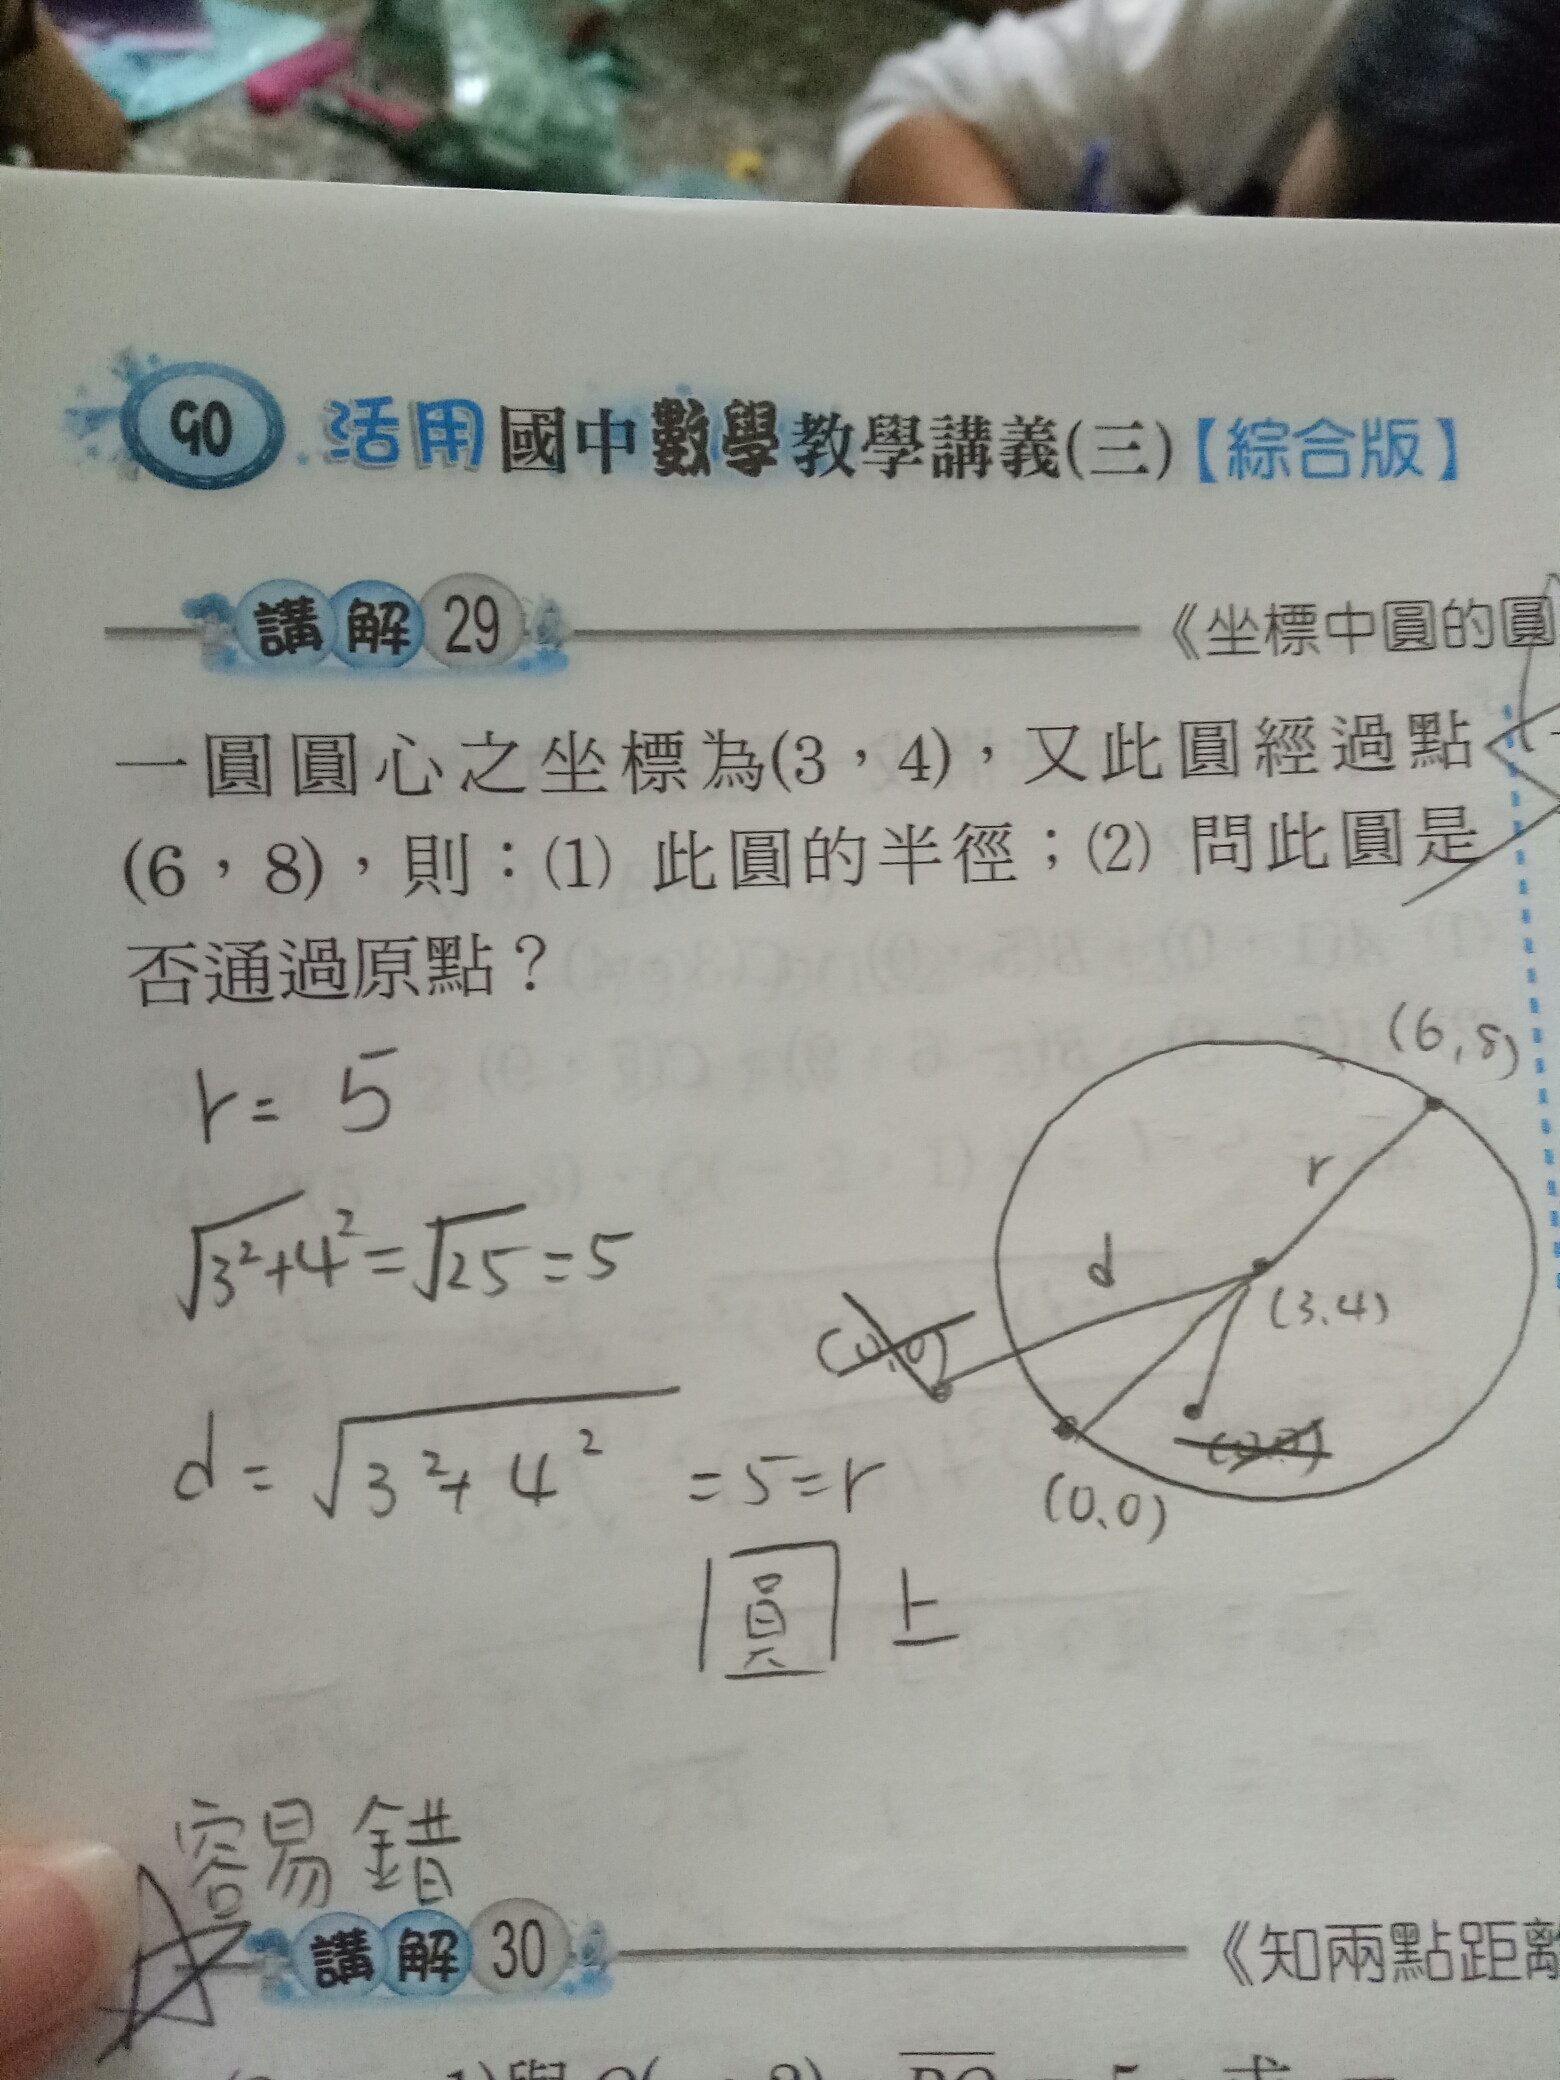 90 活用國中數學教學講義(三)【綜合版】
講解 29 《坐標中圓的圓
一圓圓心之坐標為(3，4)，又此圓經過點
(6，8)，則：(1) 此圓的半徑；(2) 問此圓是
否通過原點？
(6,8)
r = 5
r
√3²+4² = √25 = 5
d
(3,4)
(0,0)
d = √3²+4² = 5 = r
(0,0)
圓上
容易錯
講解 30 《知兩點距離